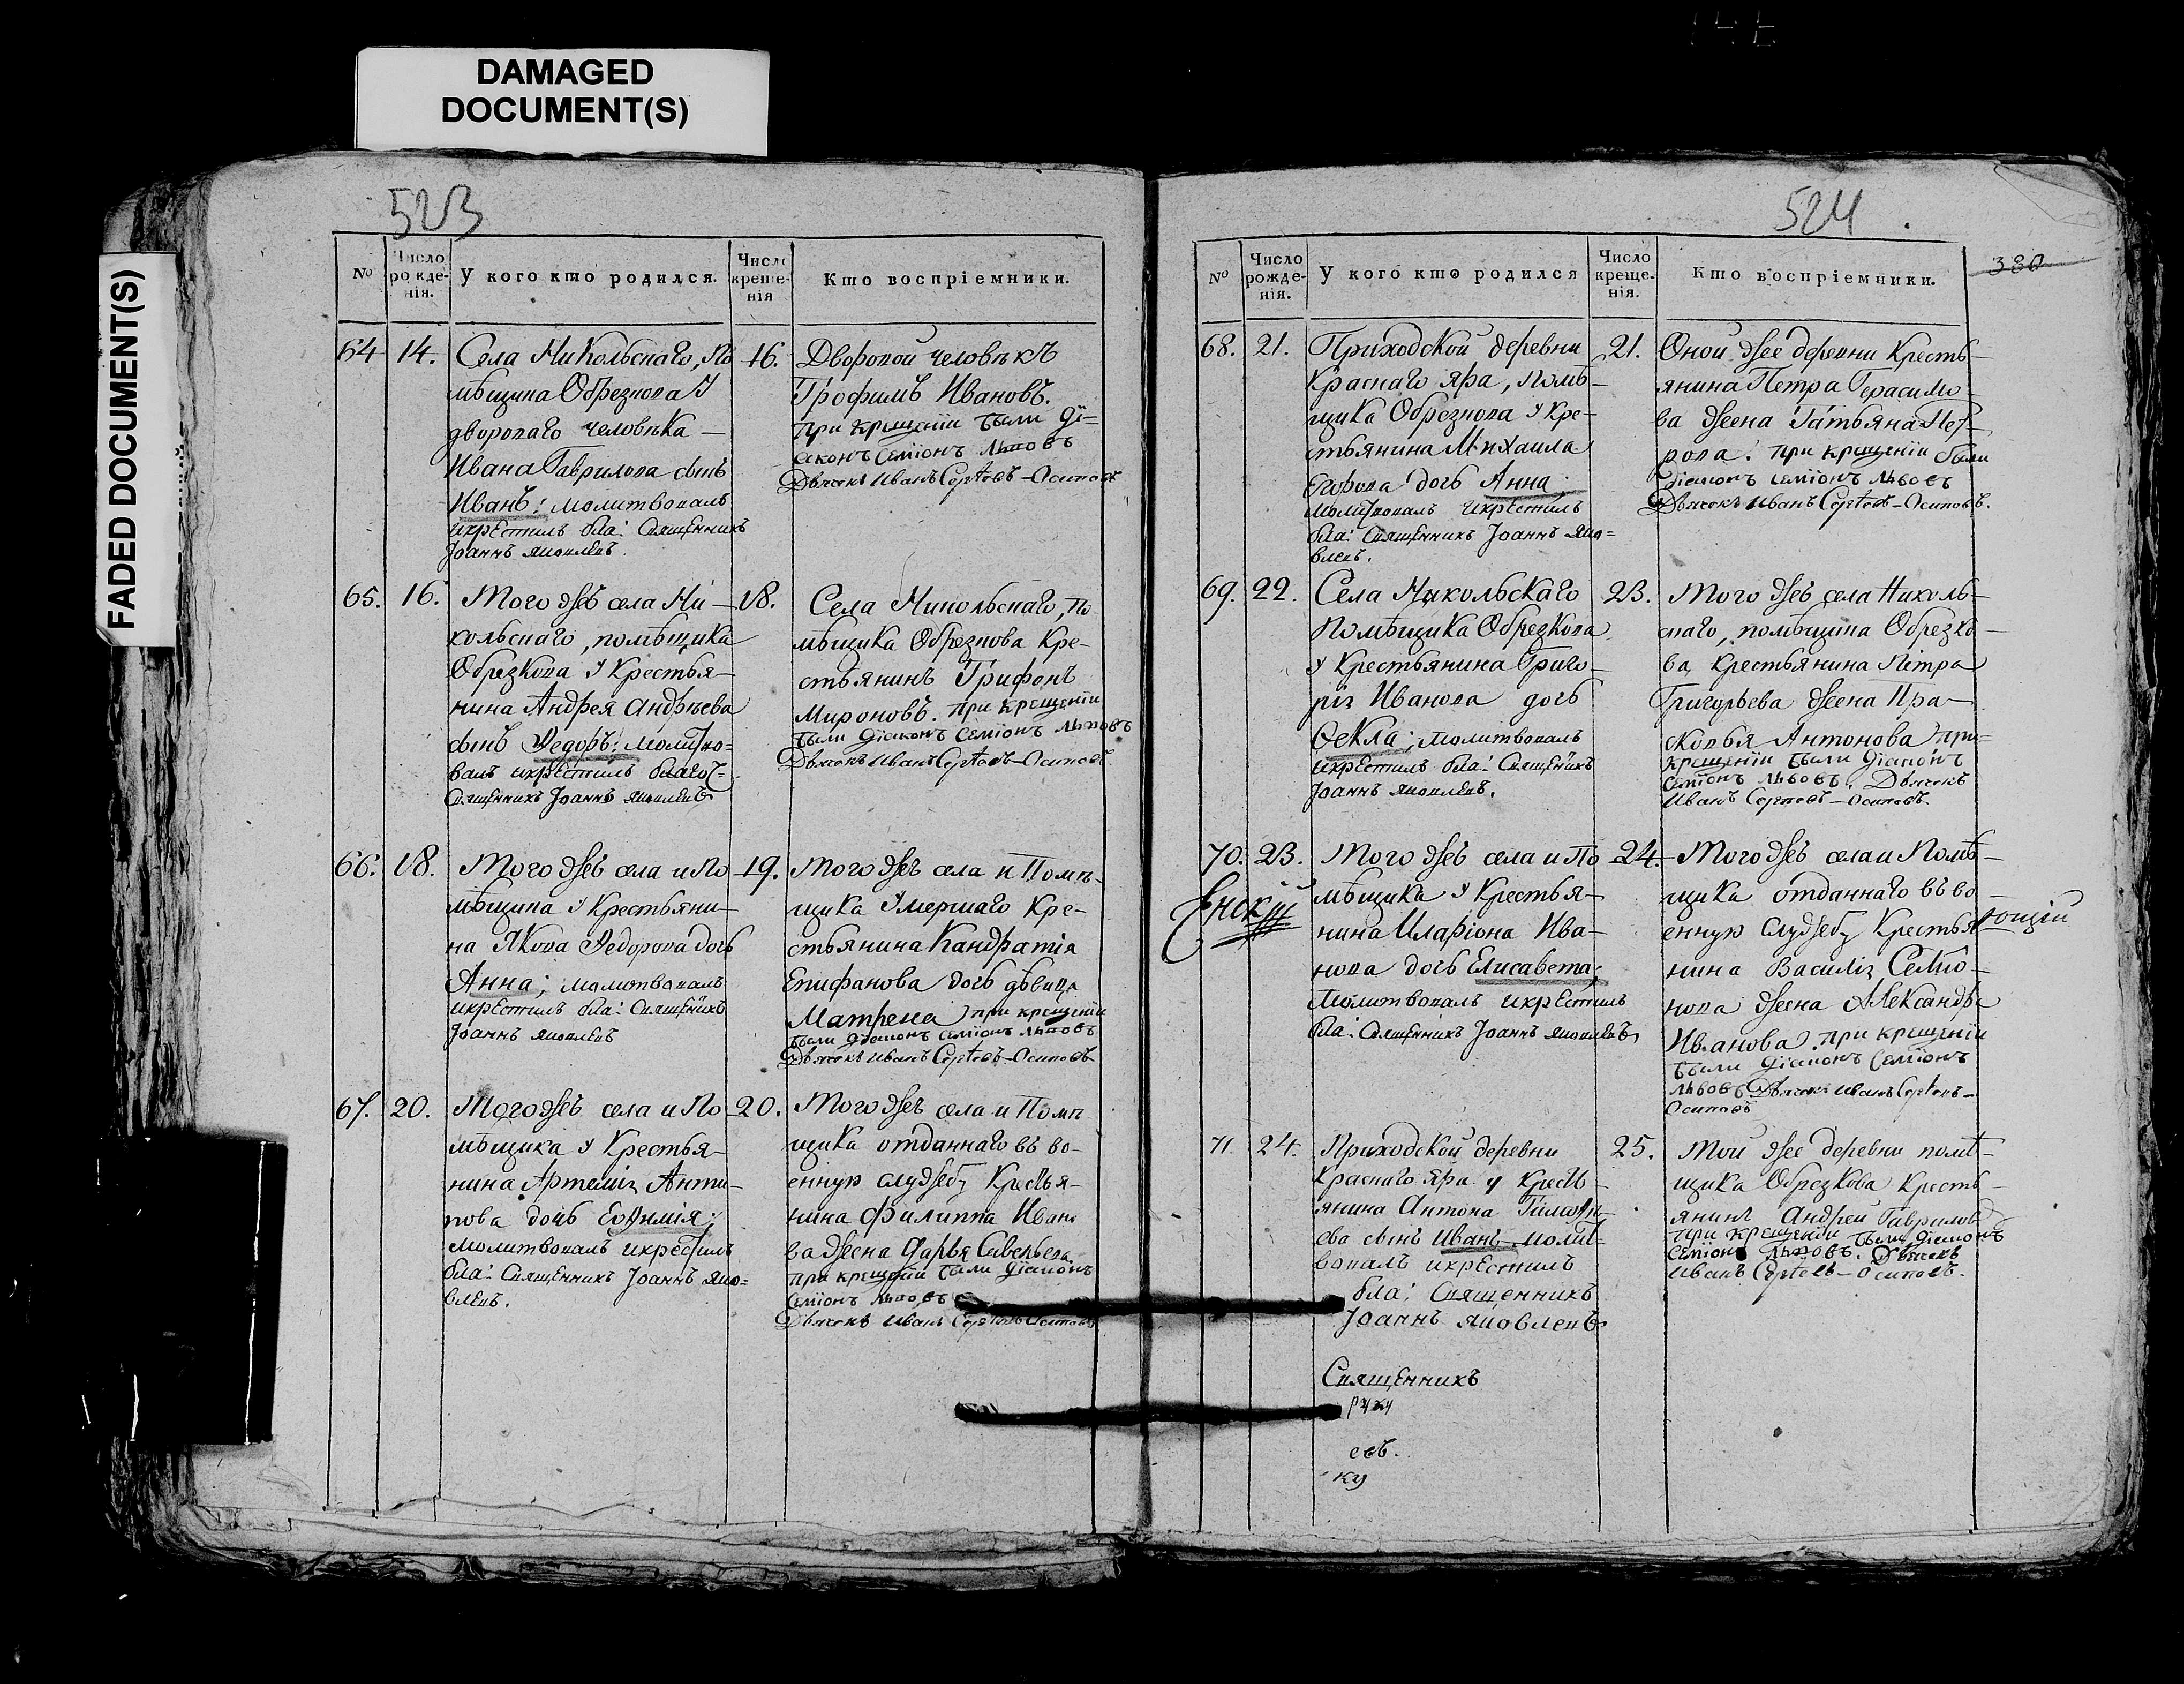 DAMAGED
DOCUMENT(S)
FADED DOCUMENT(S)
523
№
Число рожде-нія.
У кого кто родился.
Число креще-нія
Кто воспріемники.
64
14.
Села Никольскаго, По
мѣщика Обрезкова У
двороваго человѣка —
Ивана Гаврилова сынъ
Иванъ; молитвовалъ
и крестилъ бла: Священникъ
Іоаннъ Яковлевъ.
16.
Дворовой человѣкъ
Трофимъ Ивановъ.
при крещеніи были Ді=
аконъ Семіонъ Львовъ
Дьячокъ Иванъ Сергѣевъ — Осиповъ
65.
16.
Того же села Ни —
кольскаго, помѣщика
Обрезкова у Крестья—
нина Андрея Андрѣева
сынъ Ѳедоръ; молитво=
валъ и крестилъ благоч=
Священникъ Іоаннъ Яковлевъ
18.
Села Никольскаго, По
мѣщика Обрезкова Кре-
стьянинъ Трифонъ
Мироновъ. при крещеніи
были Діаконъ Семіонъ Львовъ
Дьячокъ Иванъ Сергѣевъ — Осиповъ
66.
18.
Того же села и По
мѣщика у Крестьяни—
на Якова Ѳедорова дочь
Анна; молитвовалъ
и крестилъ бла: Священикъ
Іоаннъ Яковлевъ
19.
Того же села и Помѣ-
щика Умершаго Кре-
стьянина Кандратія
Епифанова дочь дѣвица
Матрена при крещеніи
были діаконъ Семіонъ Львовъ
Дьячокъ Иванъ Сергѣевъ — Осиповъ
67.
20.
Того же села и По
мѣщика у Крестья—
нина Артемія Анти—
пова дочь Евѳимія;
молитвовалъ и крестилъ
бла: Священникъ Іоаннъ Яко=
влевъ.
20.
Того же села и Помѣ
щика отданнаго въ во-
енную службу Крестья-
нина Филиппа Ивано
ва жена Дарья Савельева
при крещеніи были Діаконъ
Семіонъ Львовъ
Дьячокъ Иванъ Сергѣевъ Осиповъ
524
№
Число рожде-нія.
У кого кто родился
Число креще-нія.
Кто воспріемники.
380
68.
21.
Приходской деревни
Краснаго Яра, помѣ—
щика Обрезкова у Кре—
стьянина Михаила
Егорова дочь Анна.
молитвовалъ и крестилъ
бла: Священникъ Іоаннъ Яко=
влевъ.
21.
Оной же деревни Кресть—
янина Петра Герасимо—
ва жена Татьяна Пет—
рова. При крещеніи были
Діаконъ Семіонъ Львовъ
Дьячокъ Иванъ Сергѣевъ — Осиповъ.
69.
22.
Села Никольскаго
Помѣщика Обрезкова
у Крестьянина Григо—
рія Иванова дочь
Ѳекла; молитвовалъ
и крестилъ бла: Священикъ
Іоаннъ Яковлевъ.
23.
Того же села Николь—
скаго, помѣщика Обрезко—
ва Крестьянина Петра
Григорьева жена Пра—
сковья Антонова при=
крещеніи были Діаконъ
Семіонъ Львовъ. Дьячокъ
Иванъ Сергѣевъ — Осиповъ.
70.
23.
Того же села и По
мѣщика у Крестья—
нина Иларіона Ива—
нова дочь Елисавета;
Молитвовалъ и крестилъ
бла: Священникъ Іоаннъ Яковлевъ
24.
Того же села и Помѣ—
щика отданнаго въ во—
енную службу Крестья
нина Василія Семіо—
нова жена Александра
Иванова. при крещеніи
были Діаконъ Семіонъ
Львовъ Дьячокъ Иванъ Сергѣевъ—
Осиповъ
71.
24.
Приходской деревни
Краснаго Яра у Кресть—
янина Антона
ева сынъ Иванъ молит=
вовалъ и крестилъ
бла: Священникъ
Іоаннъ Яковлевъ
25.
Той же деревни помѣ—
щика Обрезкова Кресть—
янинъ Андрей Гавриловъ
при крещеніи были Діаконъ
Семіонъ Львовъ. Дьячокъ
Иванъ Сергѣевъ — Осиповъ.
Священникъ
руку
евъ.
ку